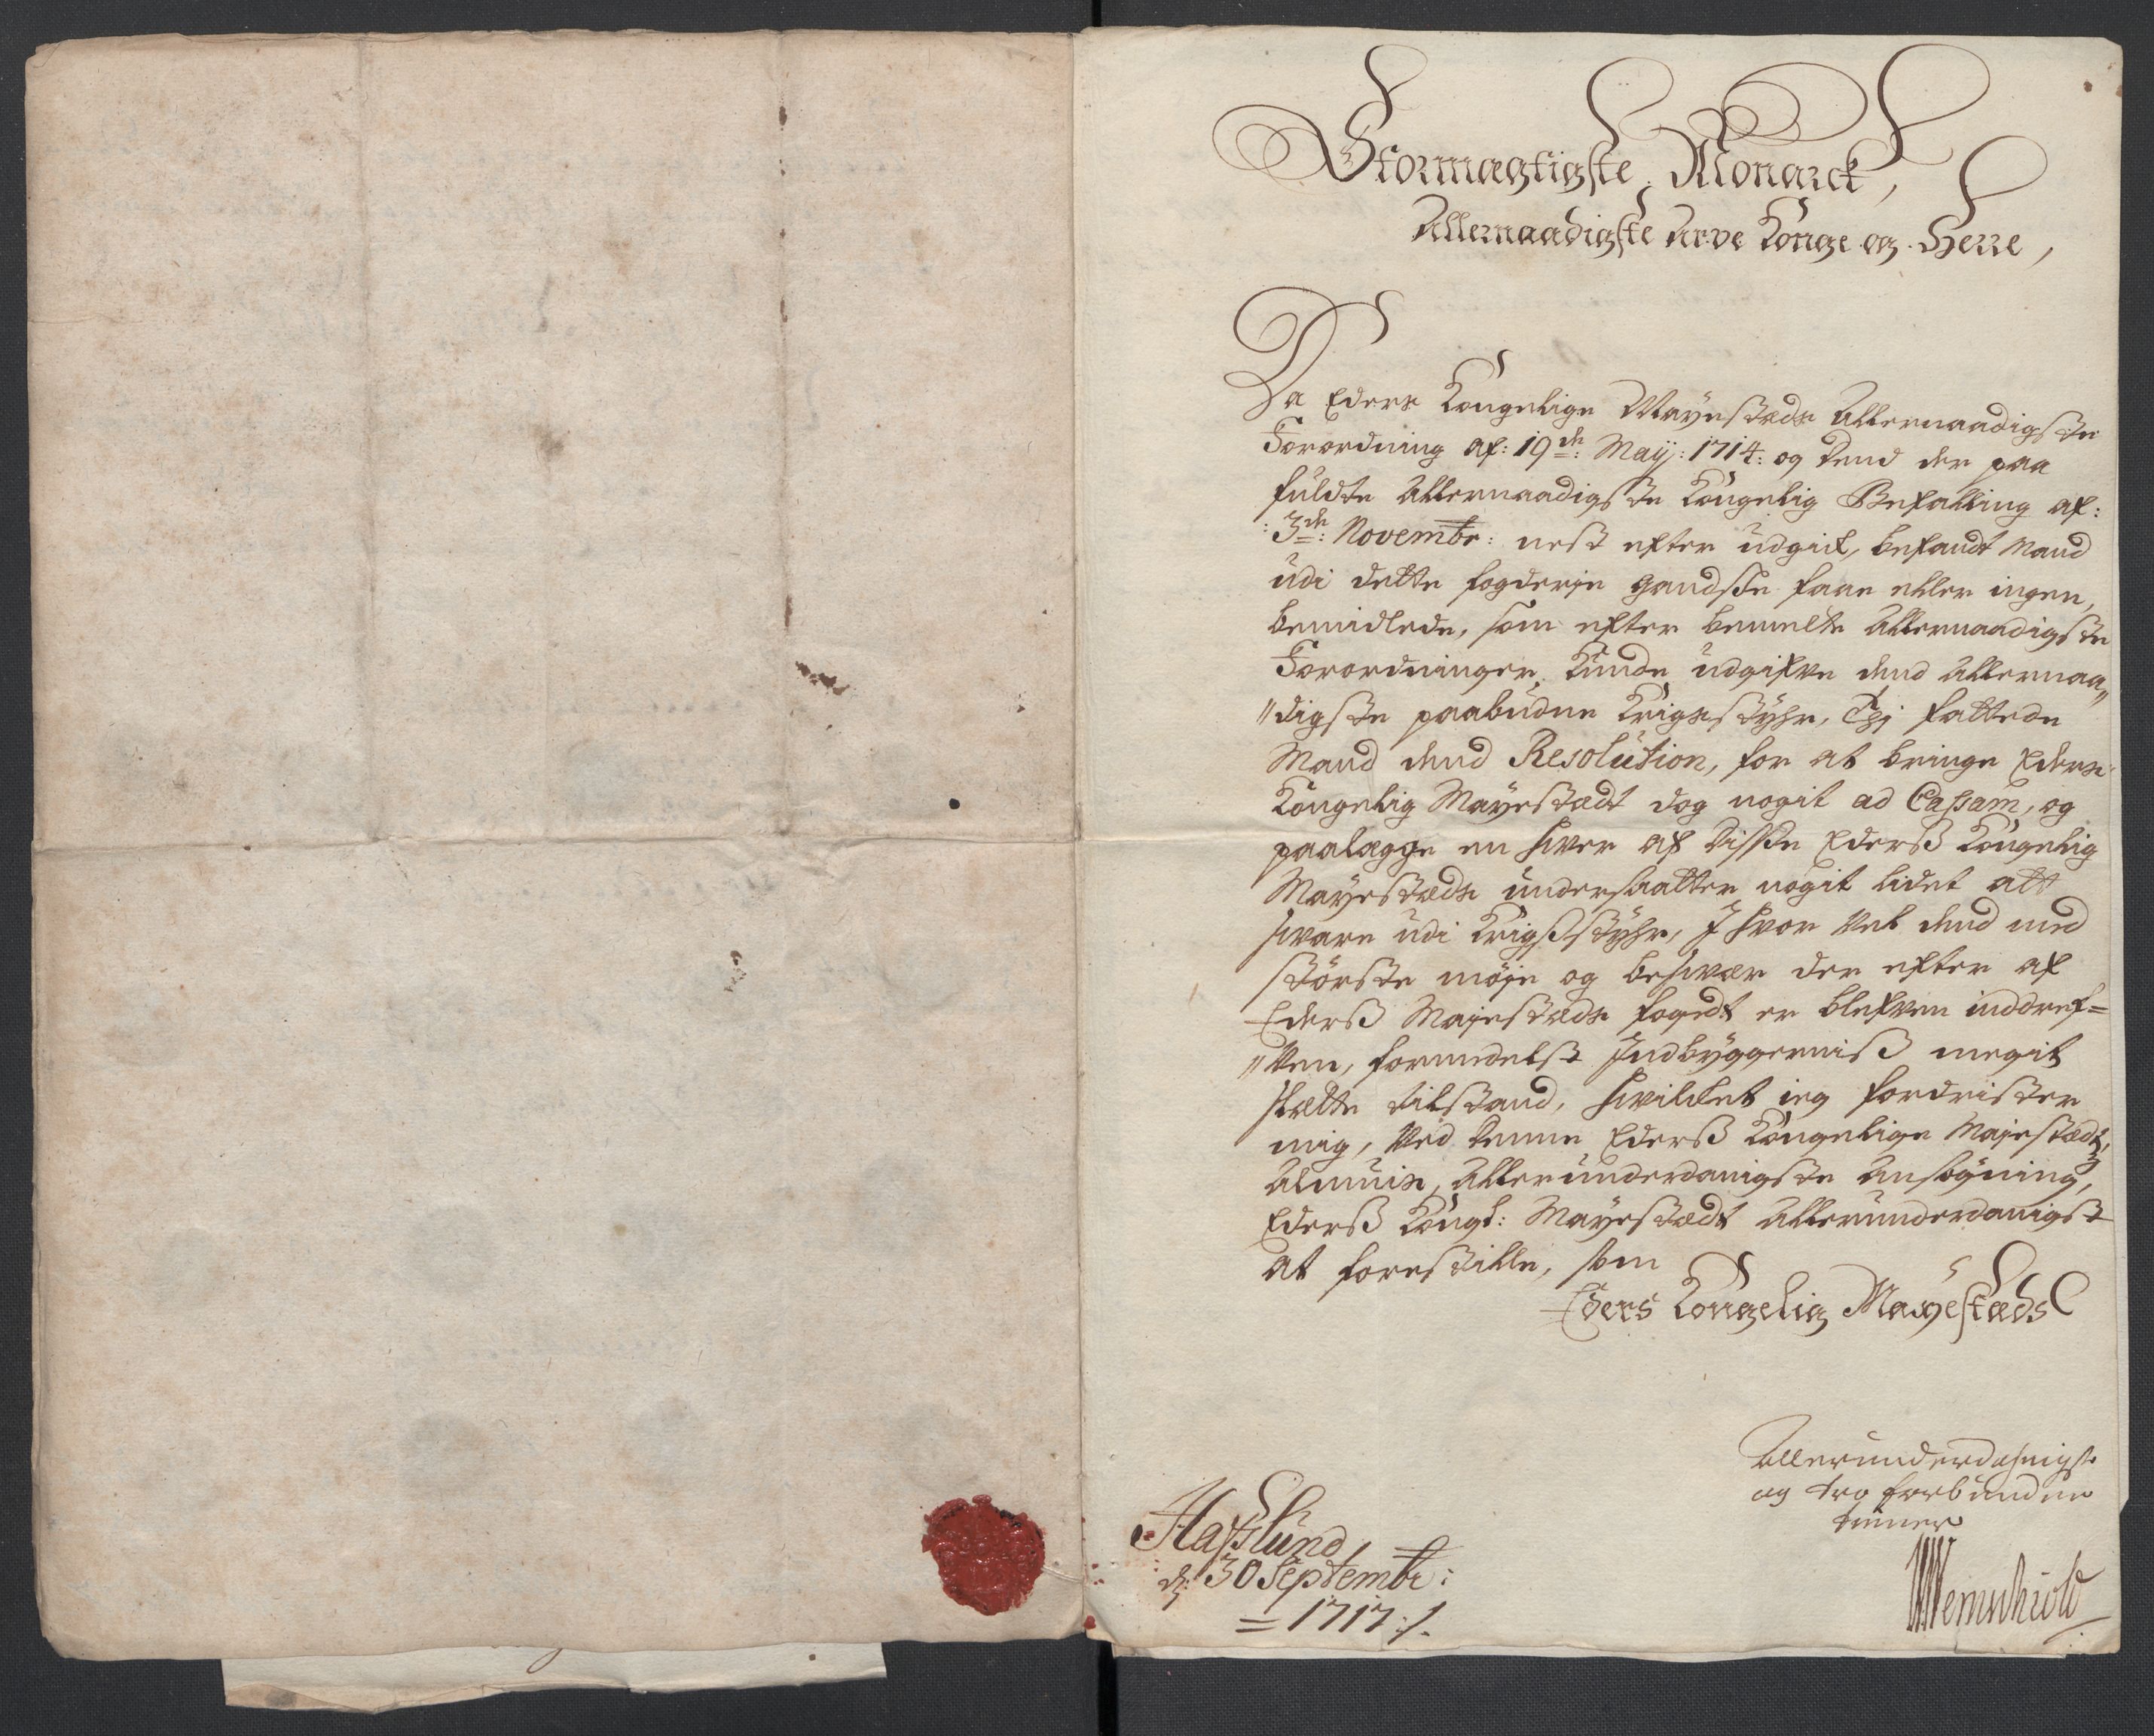 Stormægtigste Monarck,
Allernaadigste Arve Konge og Herre,
Da Eders Kongelige Mayestæds Allernaadigste
Forordning af: 19de: Maij: 1714: og dend der paa
fuldte Allernaadigste Kongelig Befalling af:
: 3de: Novembr: nest efter udgick, befandt Mand
udi dette fogderje gandske faae eller ingen,
bemidlede, som efter bemelte Allernaadigste
Forordninger kunde udgifve dend Allernaa„
„digste paabudne Krigsstyhr, Thj fattede
Mand dend Resolution, for at bringe Eders
Kongelig Mayestædt dog nogit ad Cassam, og
paalægge en hver af disse Ederß Kongelig
Mayestæds undersaatter nogit lidet att
svare udi Krigßstyhr, J hvor vel dend med
største møje og besvær der efter af
Ederß Majestæds fogedt er blefven inddref=
„ven, formedelst Jndbyggerniß megit
slætte tilstand, hvilcket ieg fordrister
mig, ved denne Ederß Kongelige Majestædtz
Almuis, Allerunderdanigste Ansøgning,
Ederß Kongl: Mayestædt Allerunderdanigst
at forestille, som
Eders Kongelig Mayestæds
Allerunderdahnigste
og tro forbundne
tiener
Hafslund,
d: 30 Septembr:
= 1717 :/.